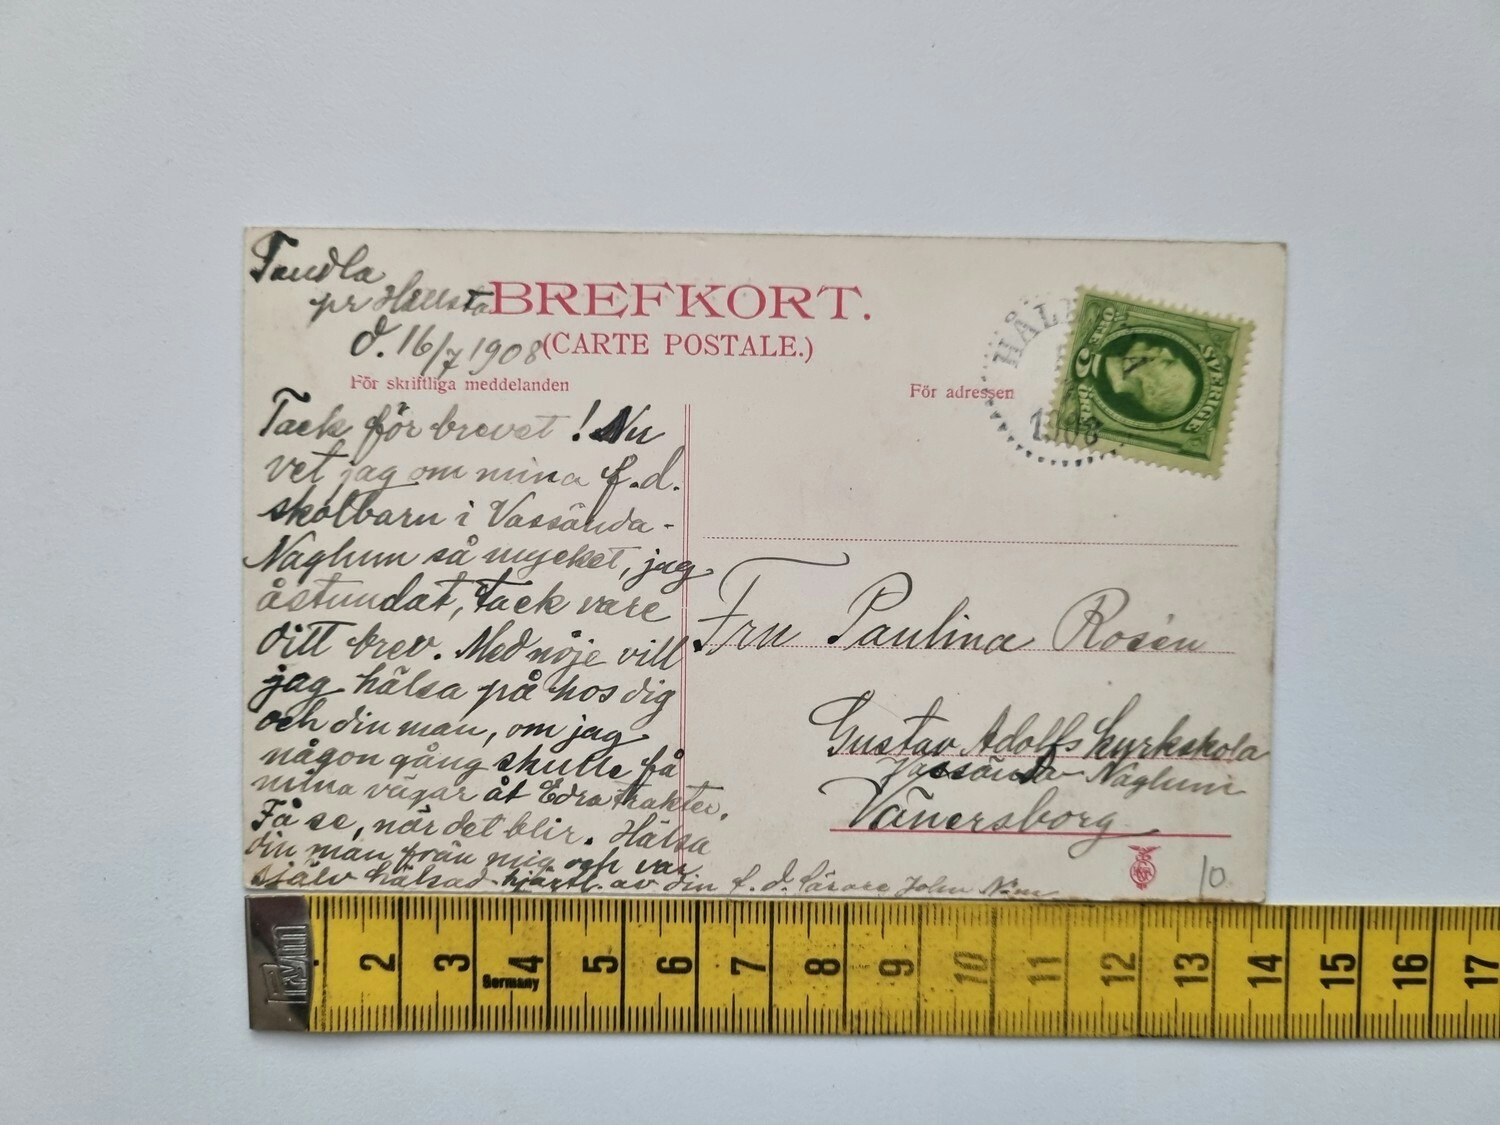 Tandla
pr Hallsta
d. 16/7 1908
BREFKORT.
(CARTE POSTALE.)
För skriftliga meddelanden
För adressen
Tack för brevet! Nu
vet jag om mina f.d.
skolbarn i Vassända-
Naglum så mycket, jag
åstundat, tack vare
ditt brev. Med nöje vill
jag hälsa på hos dig
och din man, om jag
någon gång skulle få
mina vägar åt Edra trakter.
Få se, när det blir. Hälsa
din man från mig och var
själv hälsad hjärtl. av din f.d. lärare John
Fru Paulina Rosén
Gustav Adolfs kyrkskola
Vassända-Naglum
Vänersborg
10
1908
SVERIGE
5
ÖRE
2
3
4
Germany
5
6
7
8
9
10
11
12
13
14
15
16
17